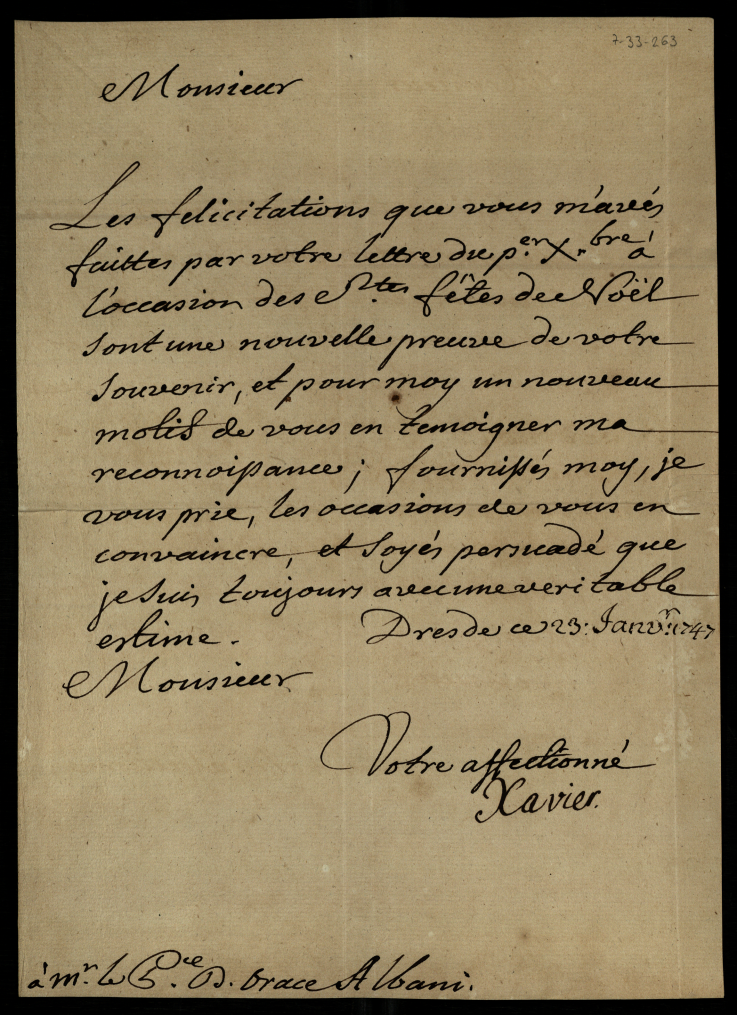 7-33-263
Monsieur
Les felicitations que vous m'avés
faittes par votre lettre du p.er X.bre à
l'occasion des S.tes fêtes de Noël
sont une nouvelle preuve de votre
souvenir, et pour moy un nouveau
motif de vous en temoigner ma
reconnoissance; fournissés moy, je
vous prie, les occasions de vous en
convaincre, et soyés persuadé que
je suis toujours avec une veritable
estime. Dresde ce 23: Janv.r 1747
Monsieur
Votre affectionné
Xavier.
à m.r le P.ce D. Orace Albani.